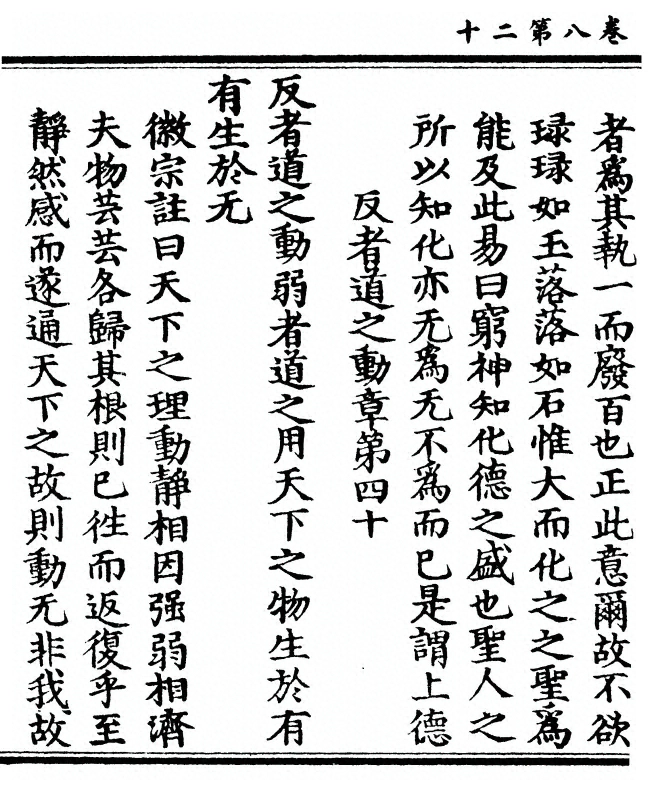 卷八第二十
者爲其執一而廢百也正此意爾故不欲
琭琭如玉落落如石惟大而化之之聖爲
能及此易曰窮神知化德之盛也聖人之
所以知化亦无爲无不爲而已是謂上德
反者道之動章第四十
反者道之動弱者道之用天下之物生於有
有生於无
徽宗註曰天下之理動靜相因强弱相濟
夫物芸芸各歸其根則已徃而返復乎至
靜然感而遂通天下之故則動无非我故